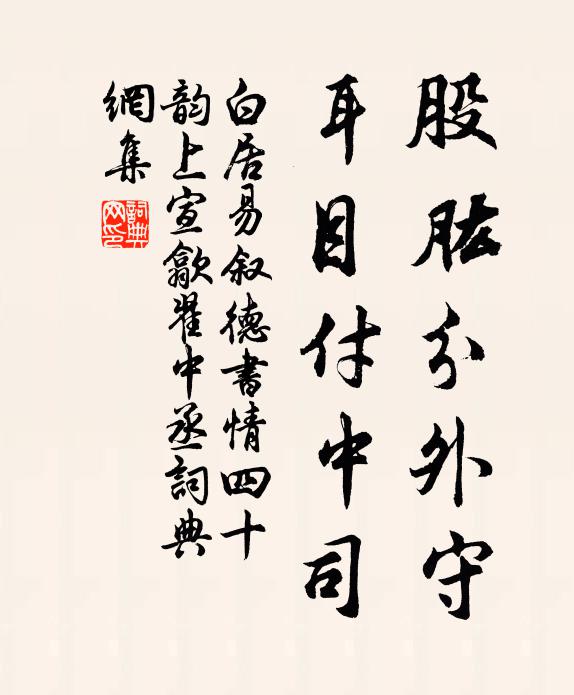 股肱分外守
耳目付中司
白居易叙德書情四十
韵上宣歙翟中丞詞典
網集
詞典网印